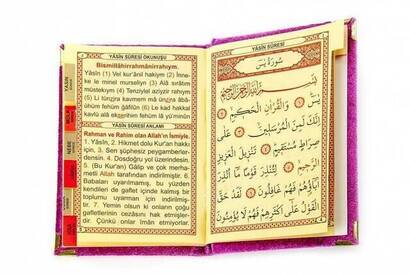 YÂSİN SÛRESİ OKUNUŞU
Bismillâhirrahmânirrahıym.
Yâsîn (1) Vel kur'ânil hakiym (2) İnne-
ke le minel murseliyn (3) Alâ sırâtın
mustekiym (4) Tenziylel aziyzir rahiym
(5) Li tünzira kavmem mâ ünzira âbâ-
ühüm fehüm ğâfilûn (6) Le kad hakkal
kavlü alâ ekserihim fehüm lâ yü'minûn
YÂSİN SÛRESİ ANLAMI
Rahman ve Rahim olan Allah'ın İsmiyle.
1. Yâsîn, 2. Hikmet dolu Kur'an hakkı
için, 3. Sen şüphesiz peygamberler-
densin. 4. Dosdoğru yol üzerindesin.
5. (Bu Kur'an) Gâlip ve çok merha-
metli Allah tarafından indirilmiştir. 6.
Babaları uyarılmamış, bu yüzden
kendileri de gaflet içinde kalmış bir
toplumu uyarman için indirilmiş-
tir. 7. Yemin olsun ki onların çoğu
gafletlerinin cezasını hak etmişler-
dir. Çünkü onlar îman etmiyorlar.
YÂSİN
YÂSİN SÛRESİ
سُورَةُ يٰسٓ
بِسْمِ اللّٰهِ الرَّحْمٰنِ الرَّحِيمِ
يٰسٓ ﴿١﴾ وَالْقُرْاٰنِ الْحَكِيمِ ﴿٢﴾
اِنَّكَ لَمِنَ الْمُرْسَلِينَ ﴿٣﴾ عَلٰى
صِرَاطٍ مُسْتَقِيمٍ ﴿٤﴾ تَنْزِيلَ الْعَزِيزِ
الرَّحِيمِ ﴿٥﴾ لِتُنْذِرَ قَوْمًا مَٓا اُنْذِرَ
اٰبَٓاؤُهُمْ فَهُمْ غَافِلُونَ ﴿٦﴾ لَقَدْ حَقَّ
الْقَوْلُ عَلٰٓى اَكْثَرِهِمْ فَهُمْ لَا يُؤْمِنُونَ